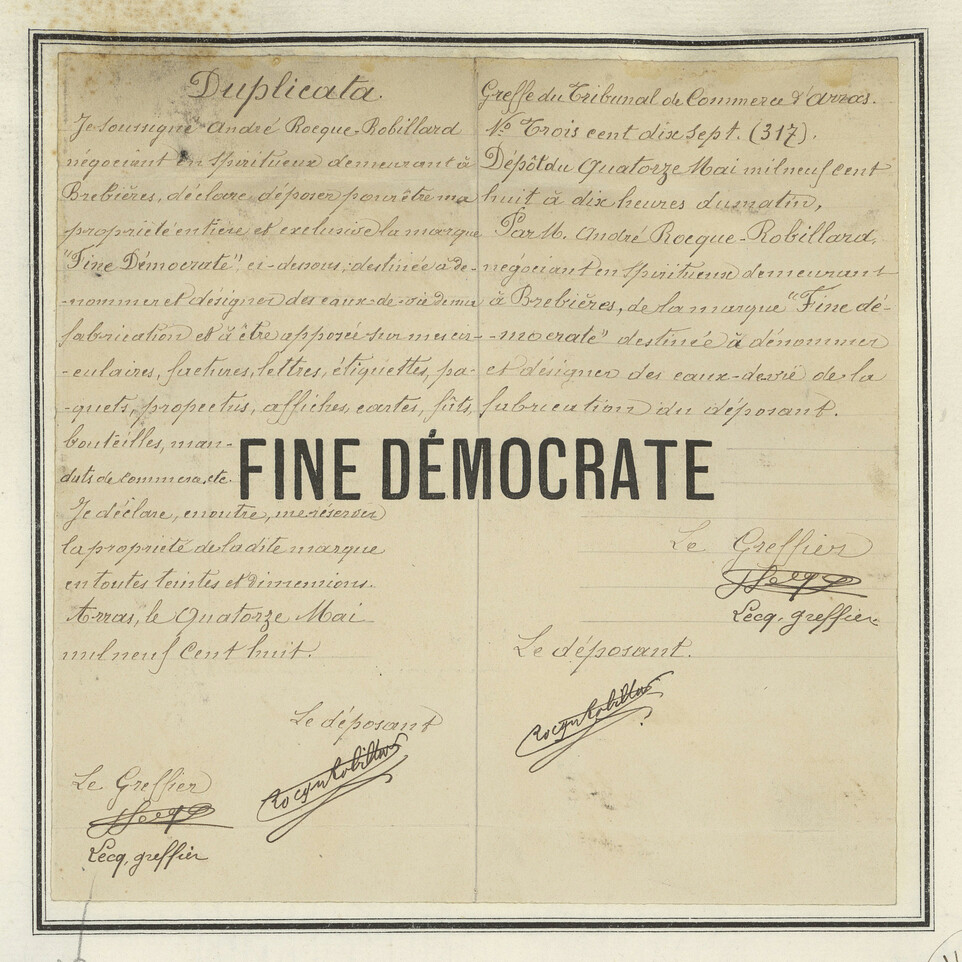 Duplicata
Je soussigné André Rocque-Robillard
négociant en spiritueux demeurant à
Brebières, déclare déposer pour être ma
propriété entière et exclusive la marque
"Fine Démocrate", ci-dessous; destinée à dé-
-nommer et désigner des eaux-de-vie de ma
fabrication et à être apposée sur mes cir-
-culaires, factures, lettres, étiquettes, pa-
-quets, propectus, affiches, cartes, fûts,
bouteilles, man-
dats de commerce, etc.
Je déclare, en outre, me réserver
la propriété de la dite marque
en toutes teintes et dimensions.
Arras, le Quatorze Mai
mil neuf cent huit.
Le déposant
Rocque Robillard
Le Greffier
Lecq, greffier
FINE DÉMOCRATE
Greffe du Tribunal de Commerce d'Arras.
No Trois cent dix sept. (317).
Dépôt du Quatorze Mai mil neuf cent
huit à dix heures du matin,
Par M. André Rocque-Robillard,
négociant en spiritueux demeurant
à Brebières, de la marque "Fine dé-
-mocrate" destinée à dénommer
et désigner des eaux-de-vie de la
fabrication du déposant.
Le Greffier
Lecq, greffier
Le déposant.
Rocque Robillard